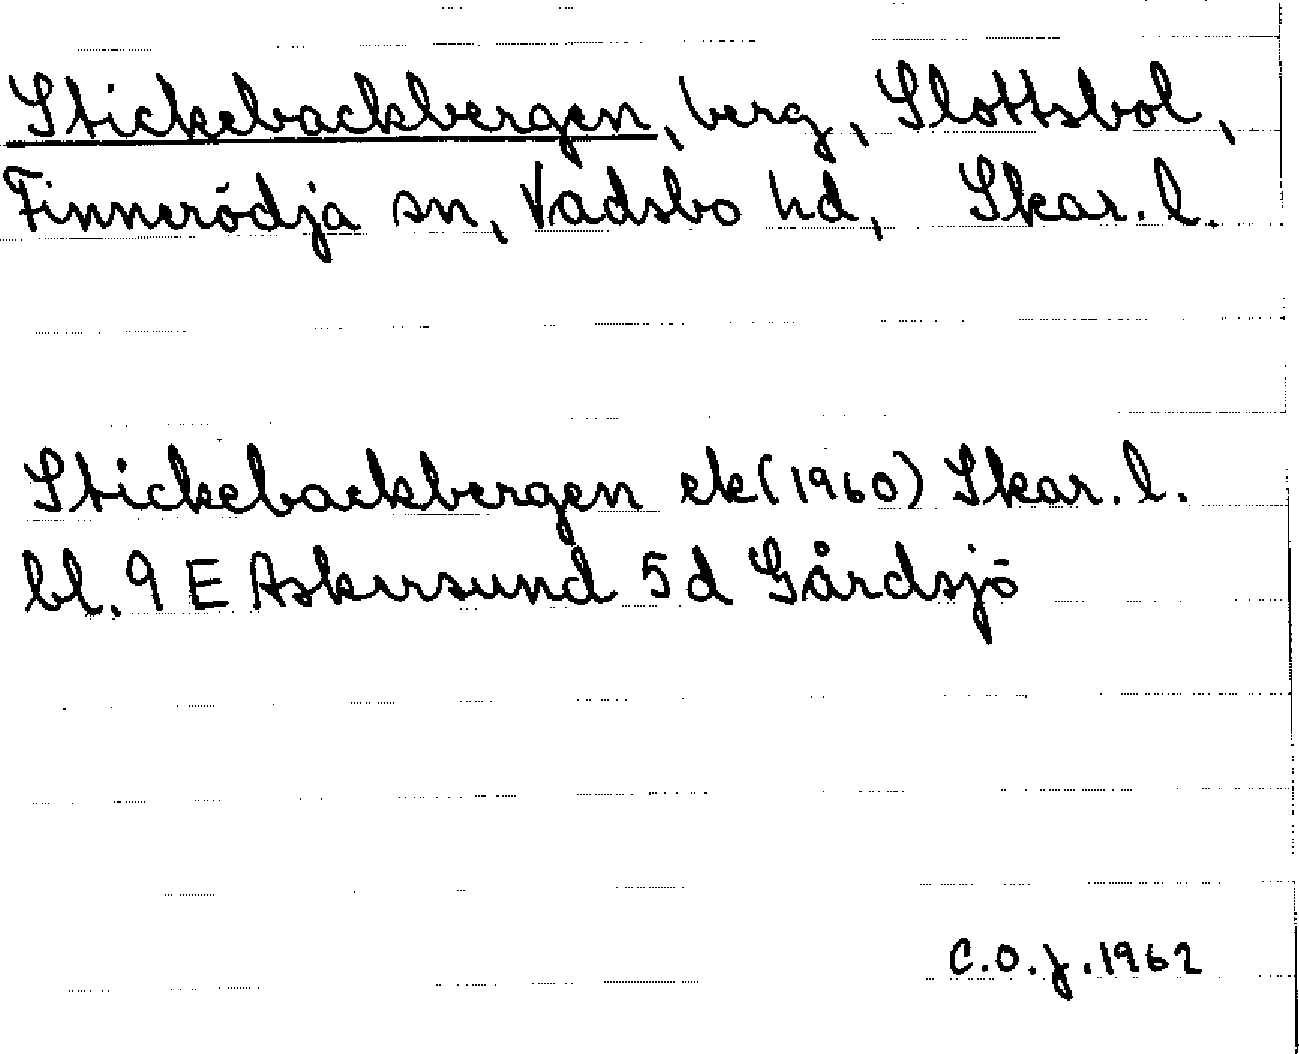 Stickebackbergen, berg, Slottsbol,
Finnerödja sn, Vadsbo hd, Skar. l.
Stickebackbergen ek (1960) Skar. l.
bl. 9 E Askersund 5 d Gårdsjö
C.O.J. 1962